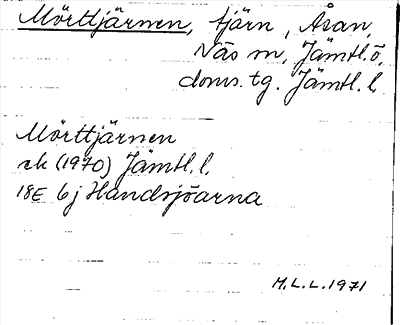 Mörttjärnen, tjärn, Åsan,
Näs sn, Jämtl. ö.
doms. tg. Jämtl. l
Mörttjärnen
ek (1970) Jämtl. l.
18E 6j Handsjöarna
M.L.L. 1971